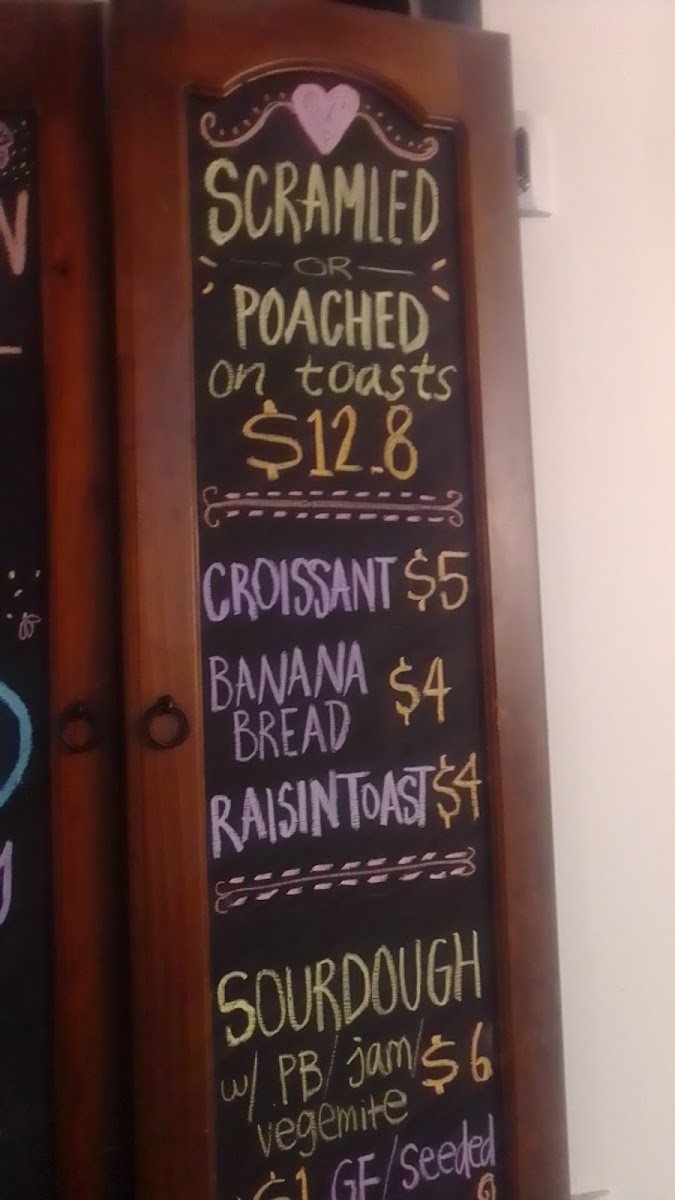 SCRAMLED
OR
POACHED
on toasts
$12.8
CROISSANT $5
BANANA
BREAD $4
RAISIN TOAST $4
SOURDOUGH
w/ PB/ jam/ $6
vegemite
$1 GF/seeded